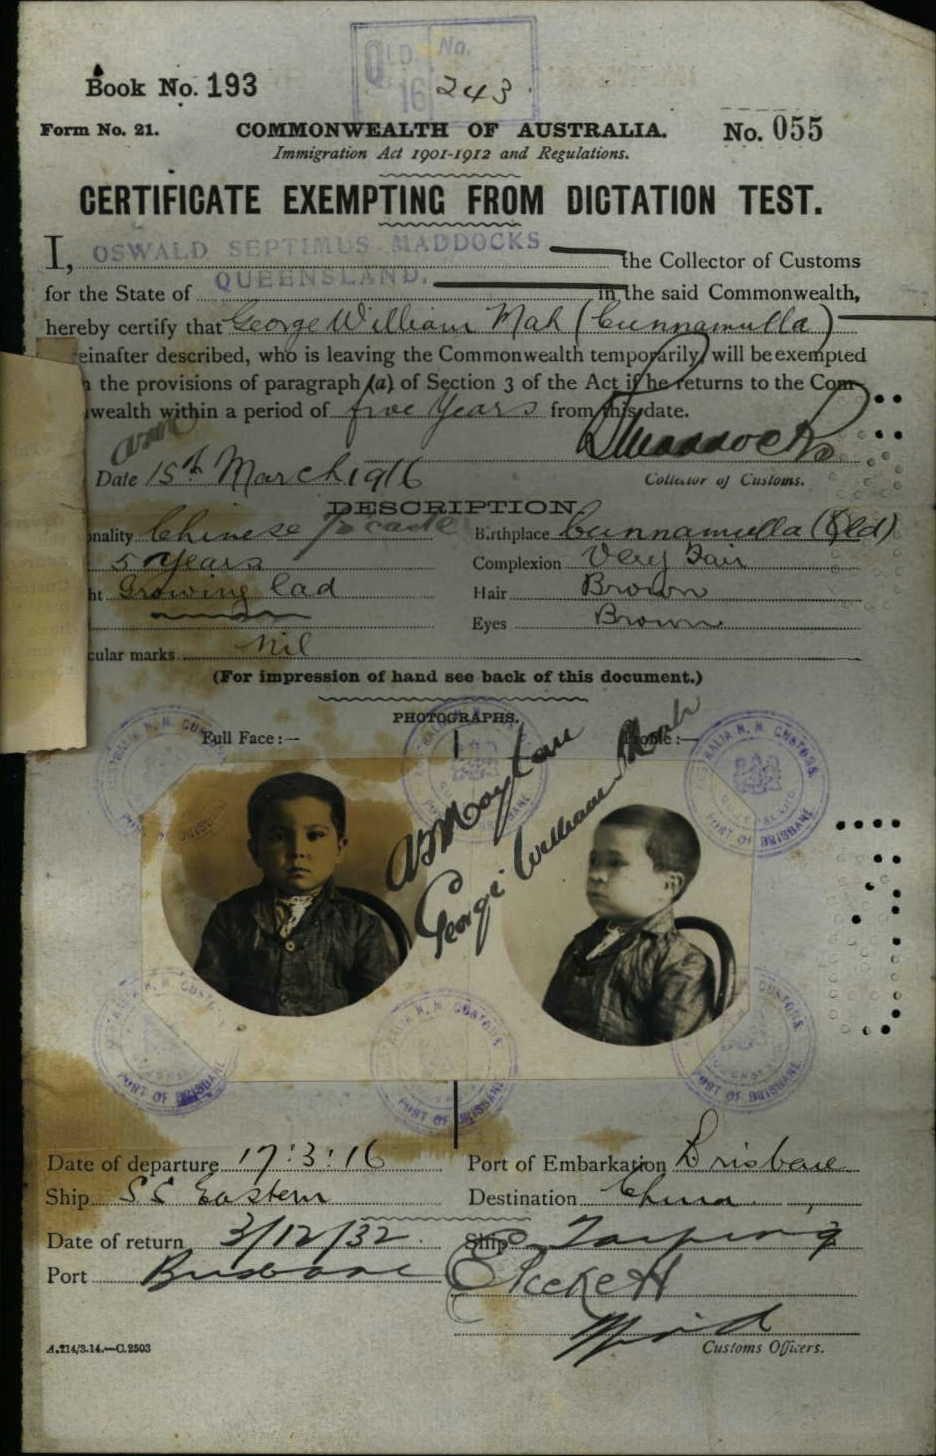 QLD. No.
16 243
Book No. 193
Form No. 21. COMMONWEALTH OF AUSTRALIA. No. 055
Immigration Act 1901-1912 and Regulations.
CERTIFICATE EXEMPTING FROM DICTATION TEST.
I, OSWALD SEPTIMUS MADDOCKS the Collector of Customs
for the State of QUEENSLAND. in the said Commonwealth,
hereby certify that George William Mah (Cunnamulla)
einafter described, who is leaving the Commonwealth temporarily, will be exempted
the provisions of paragraph (a) of Section 3 of the Act if he returns to the Com-
wealth within a period of five Years from this date.
Maddocks
Date 15th March 1916 Collector of Customs.
DESCRIPTION.
nality Chinese ½ caste Birthplace Cunnamulla (Qld)
5 Years Complexion Very Fair
ht Growing lad Hair Brown
Eyes Brown
cular marks Nil
(For impression of hand see back of this document.)
PHOTOGRAPHS.
Full Face:— Profile:—
George William Mah
PORT OF BRISBANE
Date of departure 17:3:16 Port of Embarkation Brisbane
Ship SS Eastern Destination China
Date of return 3/12/32. Ship Taiping
Port Brisbane
A.214/3.14.—C.2503 Customs Officers.